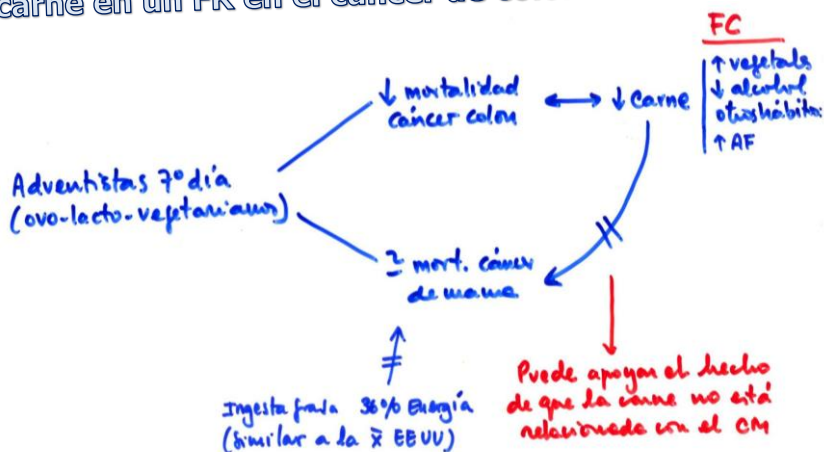 carne en un FR en el cáncer de
FC
↑ vegetals
↓ alcohol
otros hábitos
↑ AF
↓ mortalidad
cáncer colon
↔ ↓ Carne
Adventistas 7º día
(ovo-lacto-vegetarianos)
≃ mort. cáncer
de mama
Ingesta grasa 36% Energía
(Similar a la x̄ EEUU)
Puede apoyar el hecho
de que la carne no está
relacionada con el CM